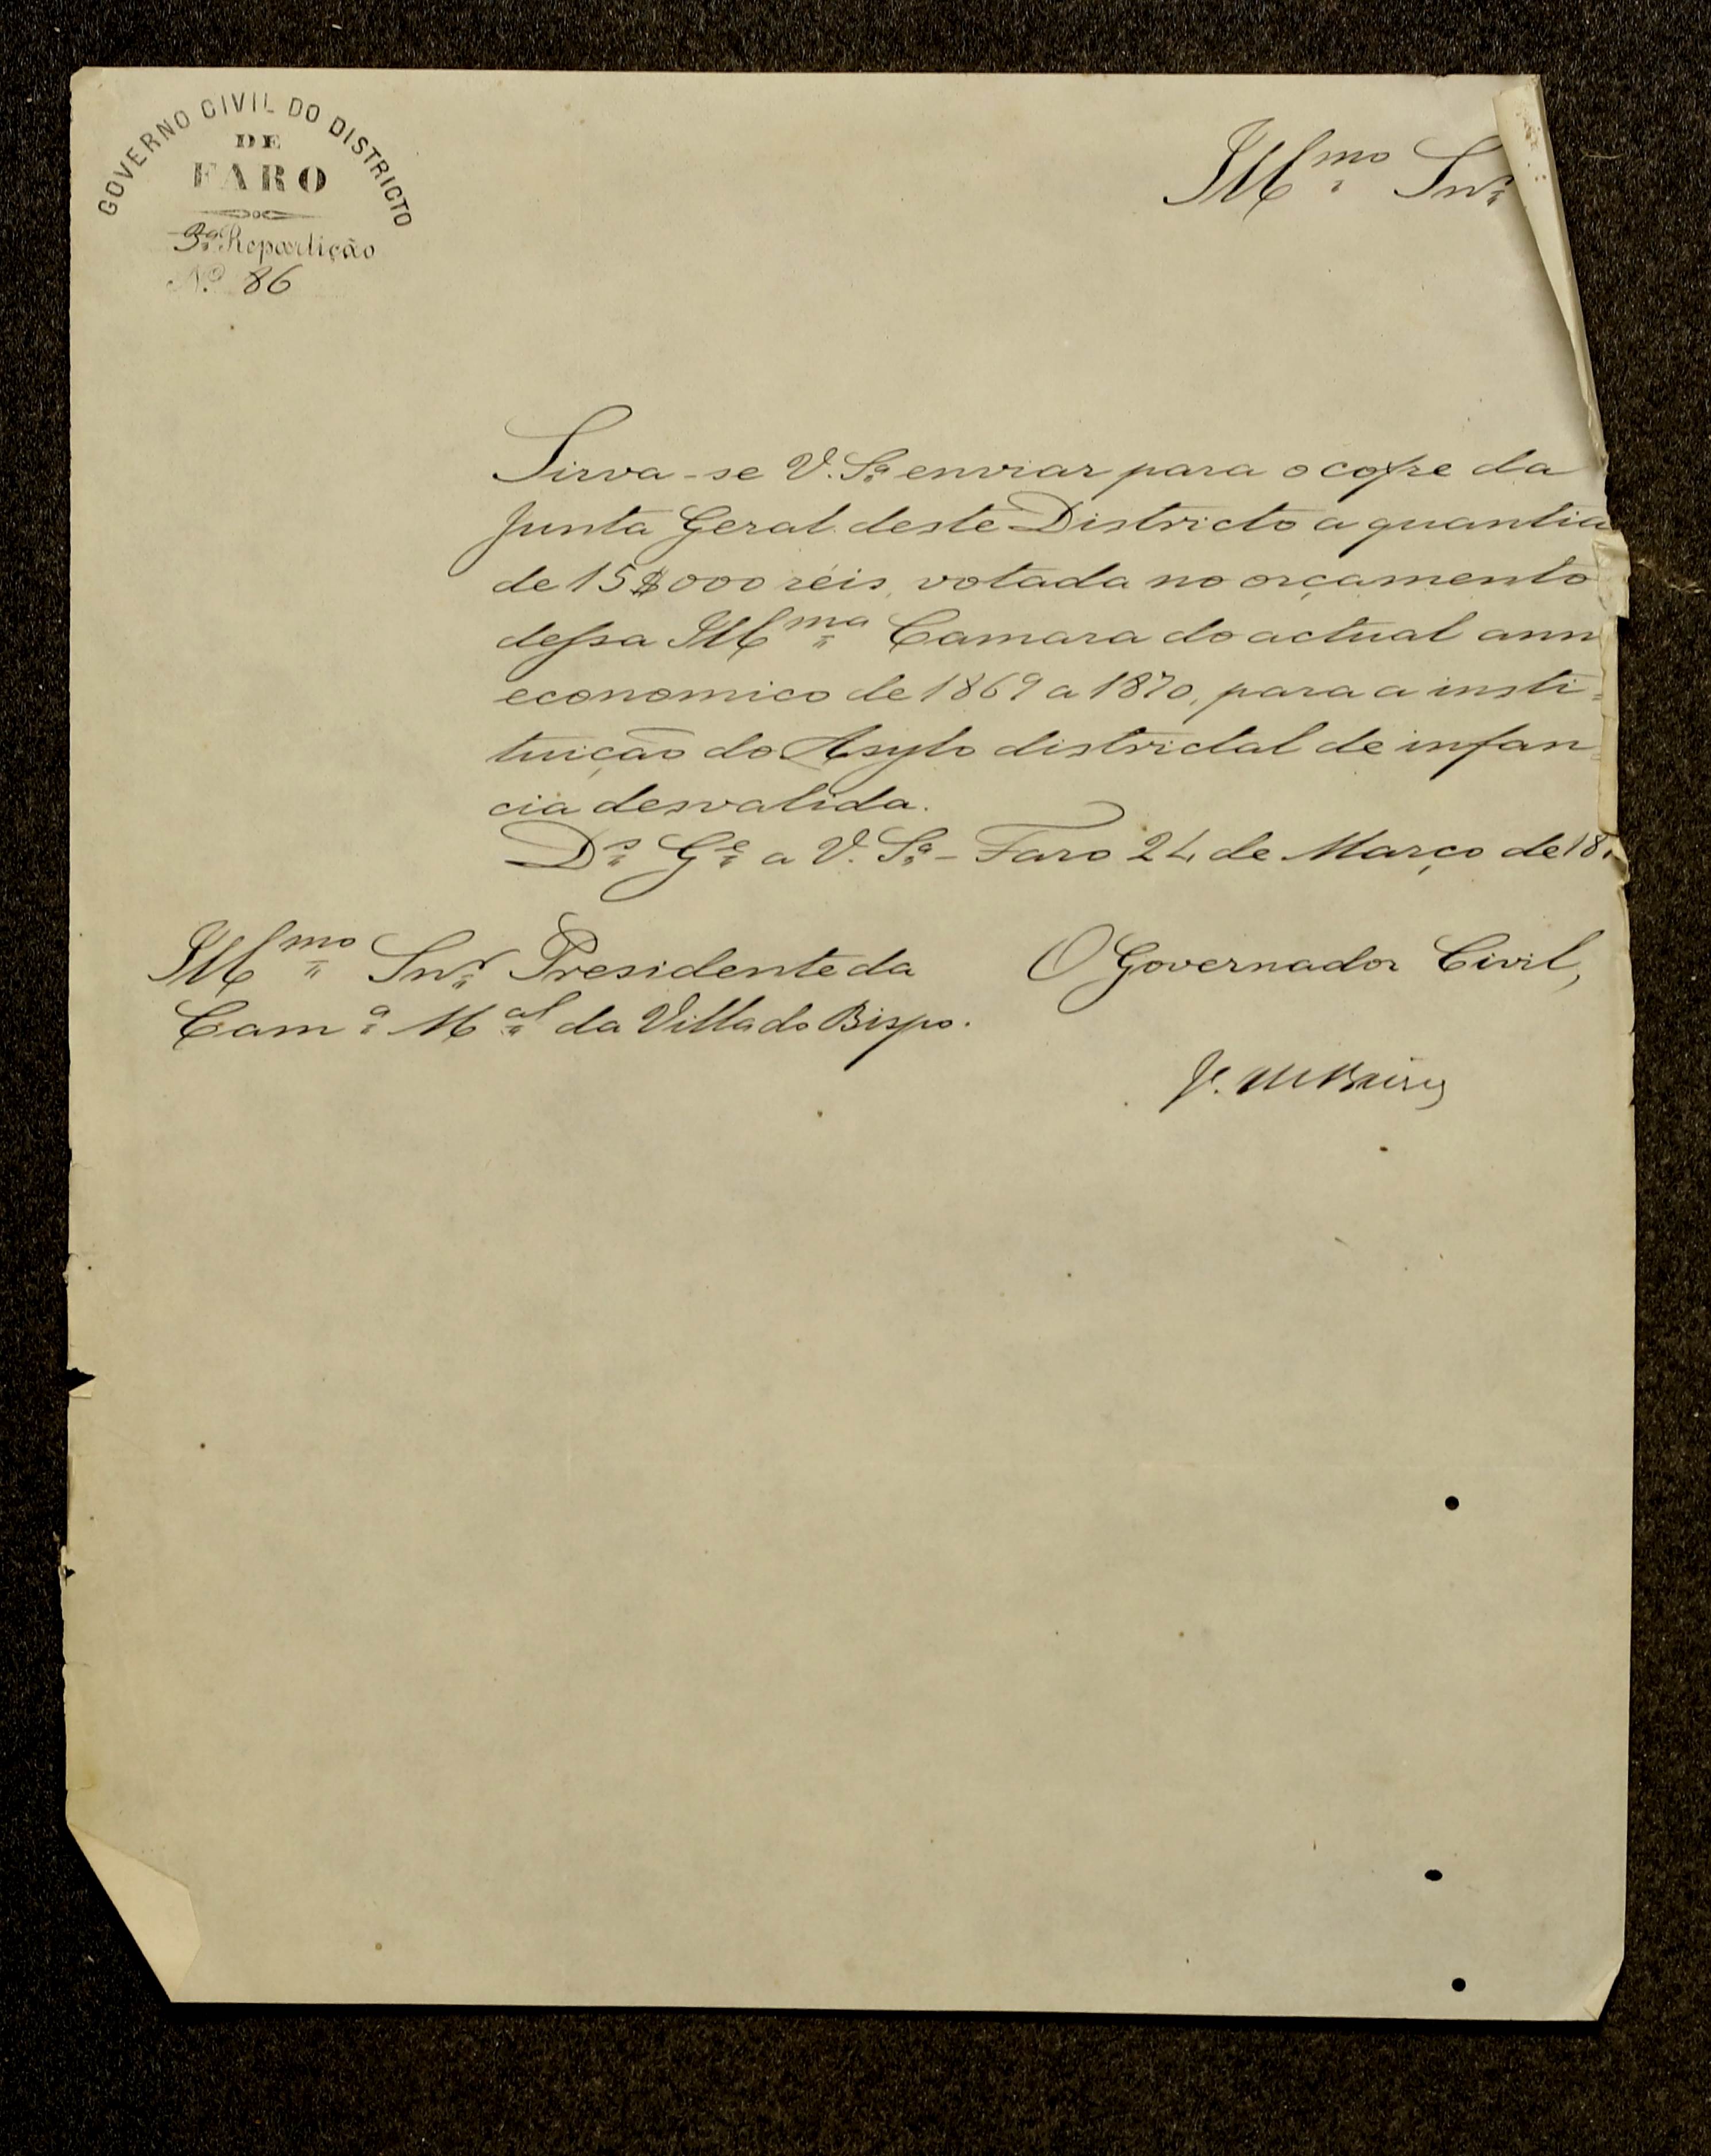 GOVERNO CIVIL DO DISTRICTO
DE
FARO
3ª Repartição
N.º 86
Illmo Snr
Sirva-se V. Sª enviar para o cofre da
Junta Geral deste Districto a quantia
de 15$000 réis, votada no orçamento
dessa Illma Camara do actual ann
economico de 1869 a 1870, para a insti=
tuição do Asylo districtal de infan=
cia desvalida.
Ds Ge a V. Sª - Faro 24 de Março de 18
Illmo Snr Presidente da
Camª Mal da Villa do Bispo.
O Governador Civil,